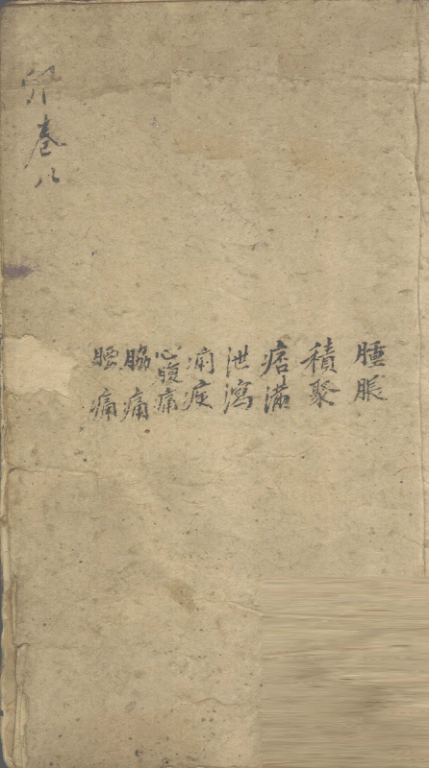 腫脹
積聚
痞滿
泄瀉
痢疾
心腹痛
脇痛
腰痛
卷八